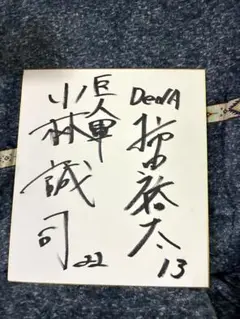 DeNA
柿田裕太
13
巨人軍
小林誠司
22